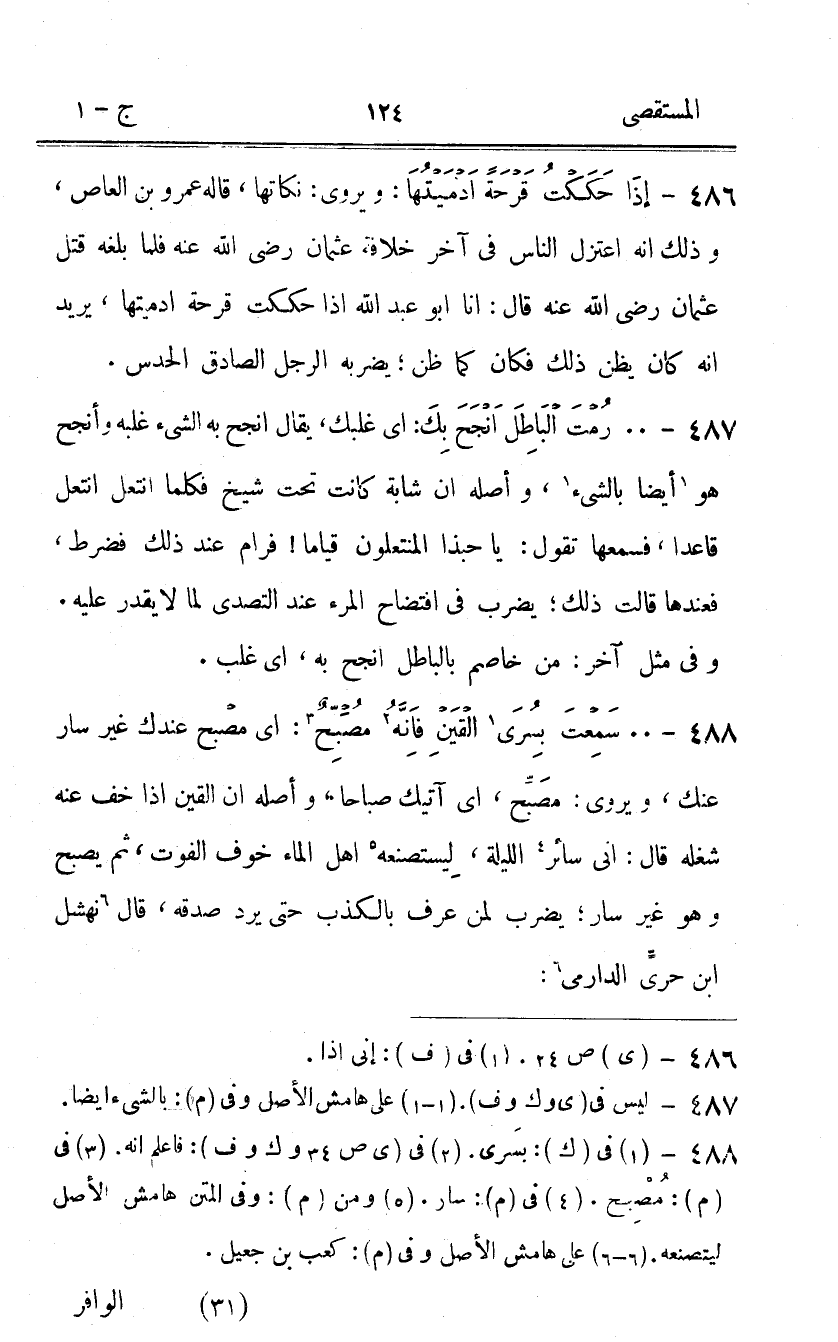 المستقصى ١٢٤ ج - ١
٤٨٦ - إِذَا حَكَكْتُ قَرْحَةً أَدْمَيْتُهَا : و يروى : نكاتها ، قاله عمرو بن العاص ،
و ذلك انه اعتزل الناس فى آخر خلافة عثمان رضى الله عنه فلما بلغه قتل
عثمان رضى الله عنه قال : انا ابو عبد الله اذا حككت قرحة ادميتها ، يريد
انه كان يظن ذلك فكان كما ظن ؛ يضربه الرجل الصادق الحدس .
٤٨٧ - ٠٠ رُمْتَ الْبَاطِلَ اَنْجَحَ بِكَ : اى غلبك ، يقال انجح به الشىء غلبه و أنجح
هو ١أيضا بالشىء١ ، و أصله ان شابة كانت تحت شيخ فكلما انتعل انتعل
قاعدا ، فسمعها تقول : يا حبذا المنتعلون قياما ! فرام عند ذلك فضرط ،
فعندها قالت ذلك ؛ يضرب فى افتضاح المرء عند التصدى لما لا يقدر عليه .
و فى مثل آخر : من خاصم بالباطل انجح به ، اى غلب .
٤٨٨ - ٠٠ سَمِعْتَ بِسُرَى١ الْقَيْنِ فَاِنَّهُ٢ مُصْبِحٌ٣ : اى مصْبح عندك غير سار
عنك ، و يروى : مصَبِّح ، اى آتيك صباحا ، و أصله ان القين اذا خف عنه
شغله قال : انى سائر٤ الليلة ، لِيستصنعه٥ اهل الماء خوف الفوت ، ثم يصبح
و هو غير سار ؛ يضرب لمن عرف بالكذب حتى يرد صدقه ، قال ٦نهشل
ابن حرىّ الدارمى٦ :
٤٨٦ - (ى) ص ٢٤ . (١) فى ( ف ) : إنى اذا .
٤٨٧ - ليس فى (ى و ك و ف) . (١-١) على هامش الأصل و فى (م) : بالشىء ايضا .
٤٨٨ - (١) فى ( ك ) : بسَرى . (٢) فى (ى ص ٣٤ و ك و ف) : فاعلم انه . (٣) فى
(م) : مُصْبِح . (٤) فى (م) : سار . (٥) ومن ( م ) : وفى المتن هامش الأصل
ليتصنعه . (٦-٦) على هامش الأصل و فى (م) : كعب بن جعيل .
(٣١) الوافر